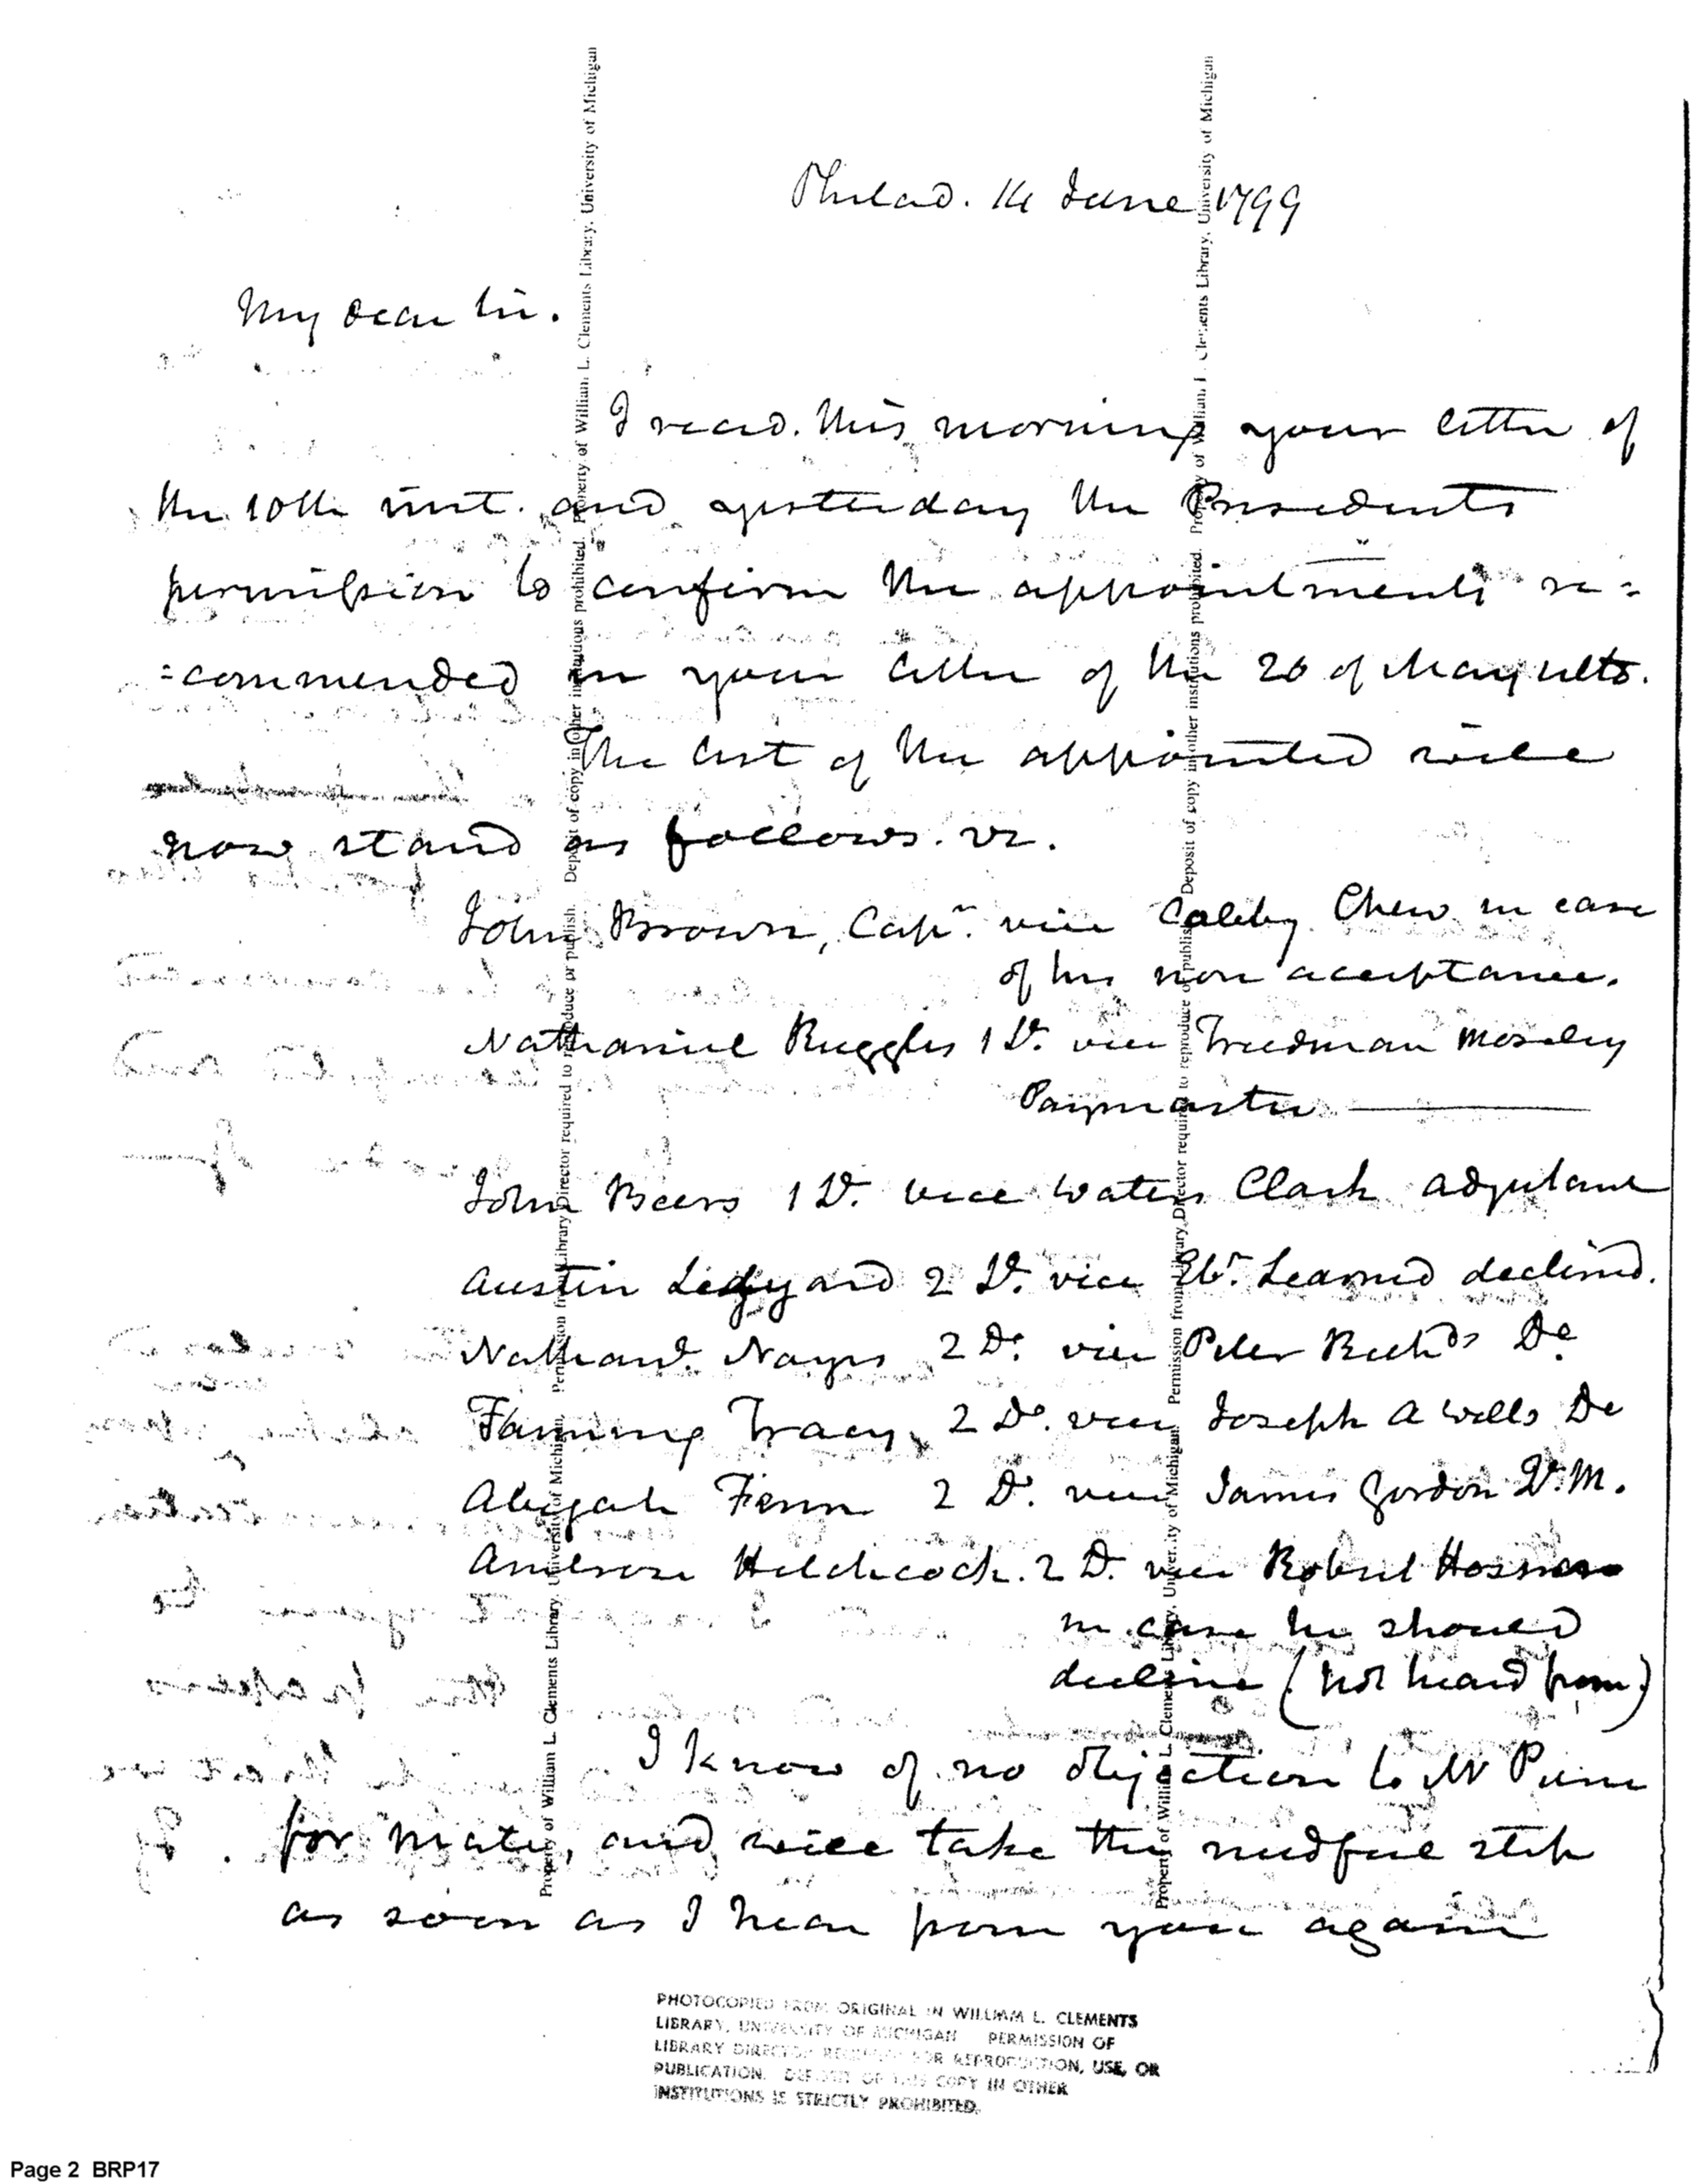 Philad. 14 June 1799
My dear Sir.
I recd. this morning your letter of
the 10th inst. and yesterday the Presidents
permission to confirm the appointments re=
=commended in your letter of the 26 of May ulto.
The list of the appointed will
now stand as follows. vz.
John Brown, Capn. vice Chew in case
of his non acceptance.
Nathaniel Ruggles 1 Lt. vice Freedman Moseley
Paymaster
John Beers 1 Lt. vice Waters Clark adjutant
Austin Ledyard 2 Lt. vice Ebr. Learned declined.
Nathanl. Noyes 2 Do. vice Peter Richds Do
Fanning Tracy, 2 Do. vice Joseph A Wells Do
Abijah Fenn 2 Do. vice James Gordon Q.M.
Ambrose Hitchcock. 2 D. vice Robert Hosmer
in case he should
decline (not heard from)
I know of no objection to Mr
for mate, and will take the needful step
as soon as I hear from you again
PHOTOCOPIED FROM ORIGINAL IN WILLIAM L. CLEMENTS
LIBRARY, UNIVERSITY OF MICHIGAN PERMISSION OF
LIBRARY DIRECTOR REQUIRED FOR REPRODUCTION, USE, OR
PUBLICATION. DEPOSIT OF THIS COPY IN OTHER
INSTITUTIONS IS STRICTLY PROHIBITED.
Property of William L. Clements Library, University of Michigan. Permission from Library Director required to reproduce or publish. Deposit of copy in other institutions prohibited. Property of William L. Clements Library, University of Michigan
Property of William L. Clements Library, University of Michigan. Permission from Library Director required to reproduce or publish. Deposit of copy in other institutions prohibited. Property of William L. Clements Library, University of Michigan
Page 2 BRP17